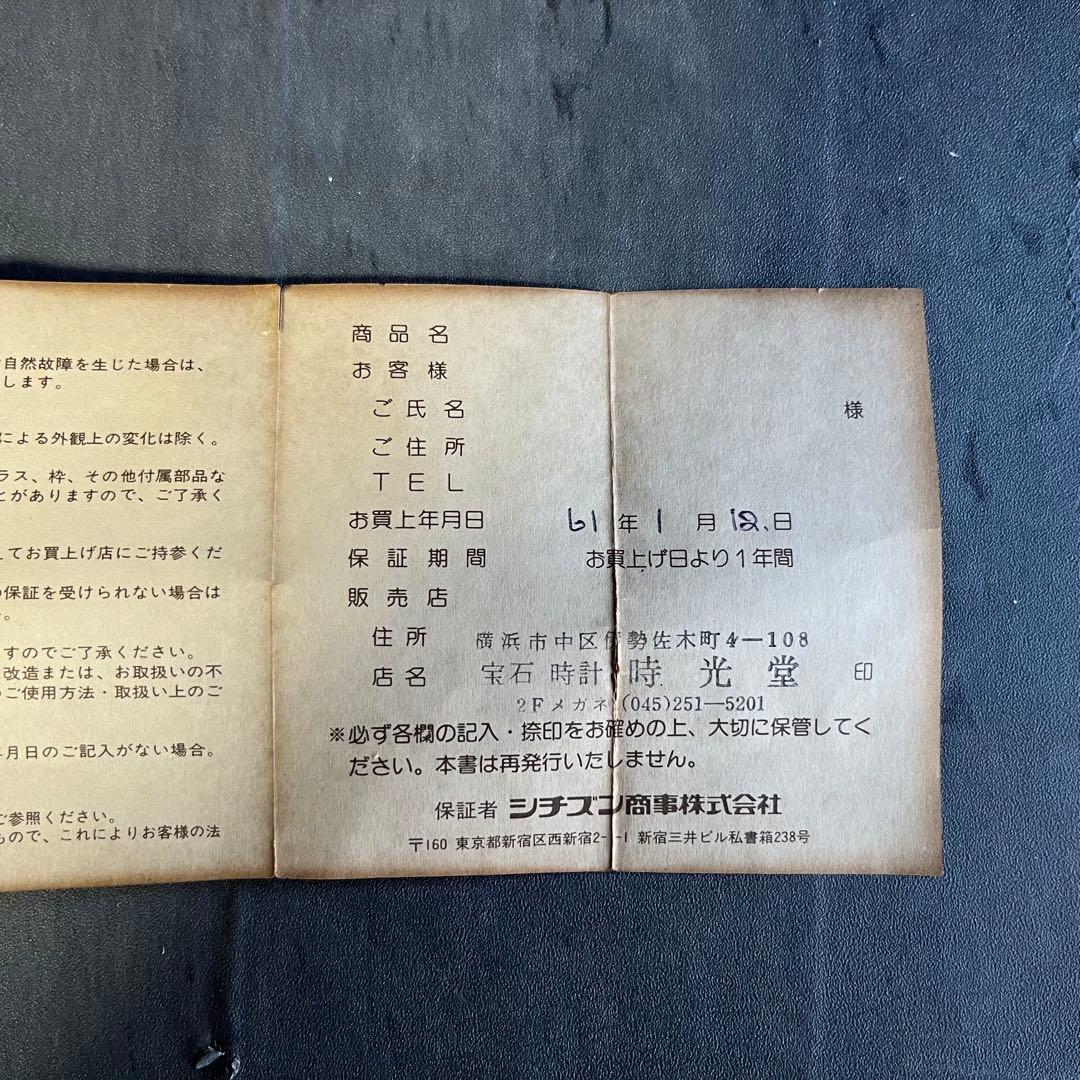 自然故障を生じた場合は、
します。
による外観上の変化は除く。
ラス、枠、その他付属部品な
とがありますので、ご了承く
てお買上げ店にご持参くだ
保証を受けられない場合は
。
すのでご了承ください。
改造または、お取扱いの不
ご使用方法・取扱い上のご
月日のご記入がない場合。
ご参照ください。
もので、これによりお客様の法
商品名
お客様
ご氏名 様
ご住所
TEL
お買上年月日 61年1月12.日
保証期間 お買上げ日より1年間
販売店
住所 横浜市中区伊勢佐木町4-108
店名 宝石 時計 時光堂 印
2Fメガネ (045)251-5201
※必ず各欄の記入・捺印をお確めの上、大切に保管してく
ださい。本書は再発行いたしません。
保証者 シチズン商事株式会社
〒160 東京都新宿区西新宿2-1-1 新宿三井ビル私書箱238号